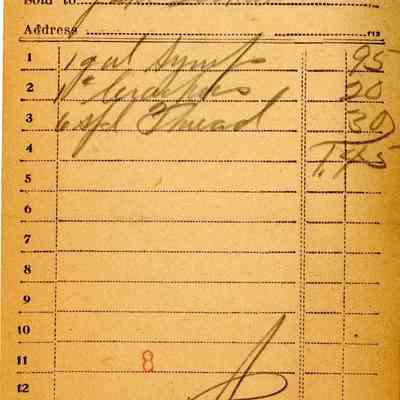 Sold to
Address
1 1 gal Syrup 95
2 1# Crackers 20
3 6 spl Thread 30
4 1.45
5
6
7
8
9
10
11 8
12